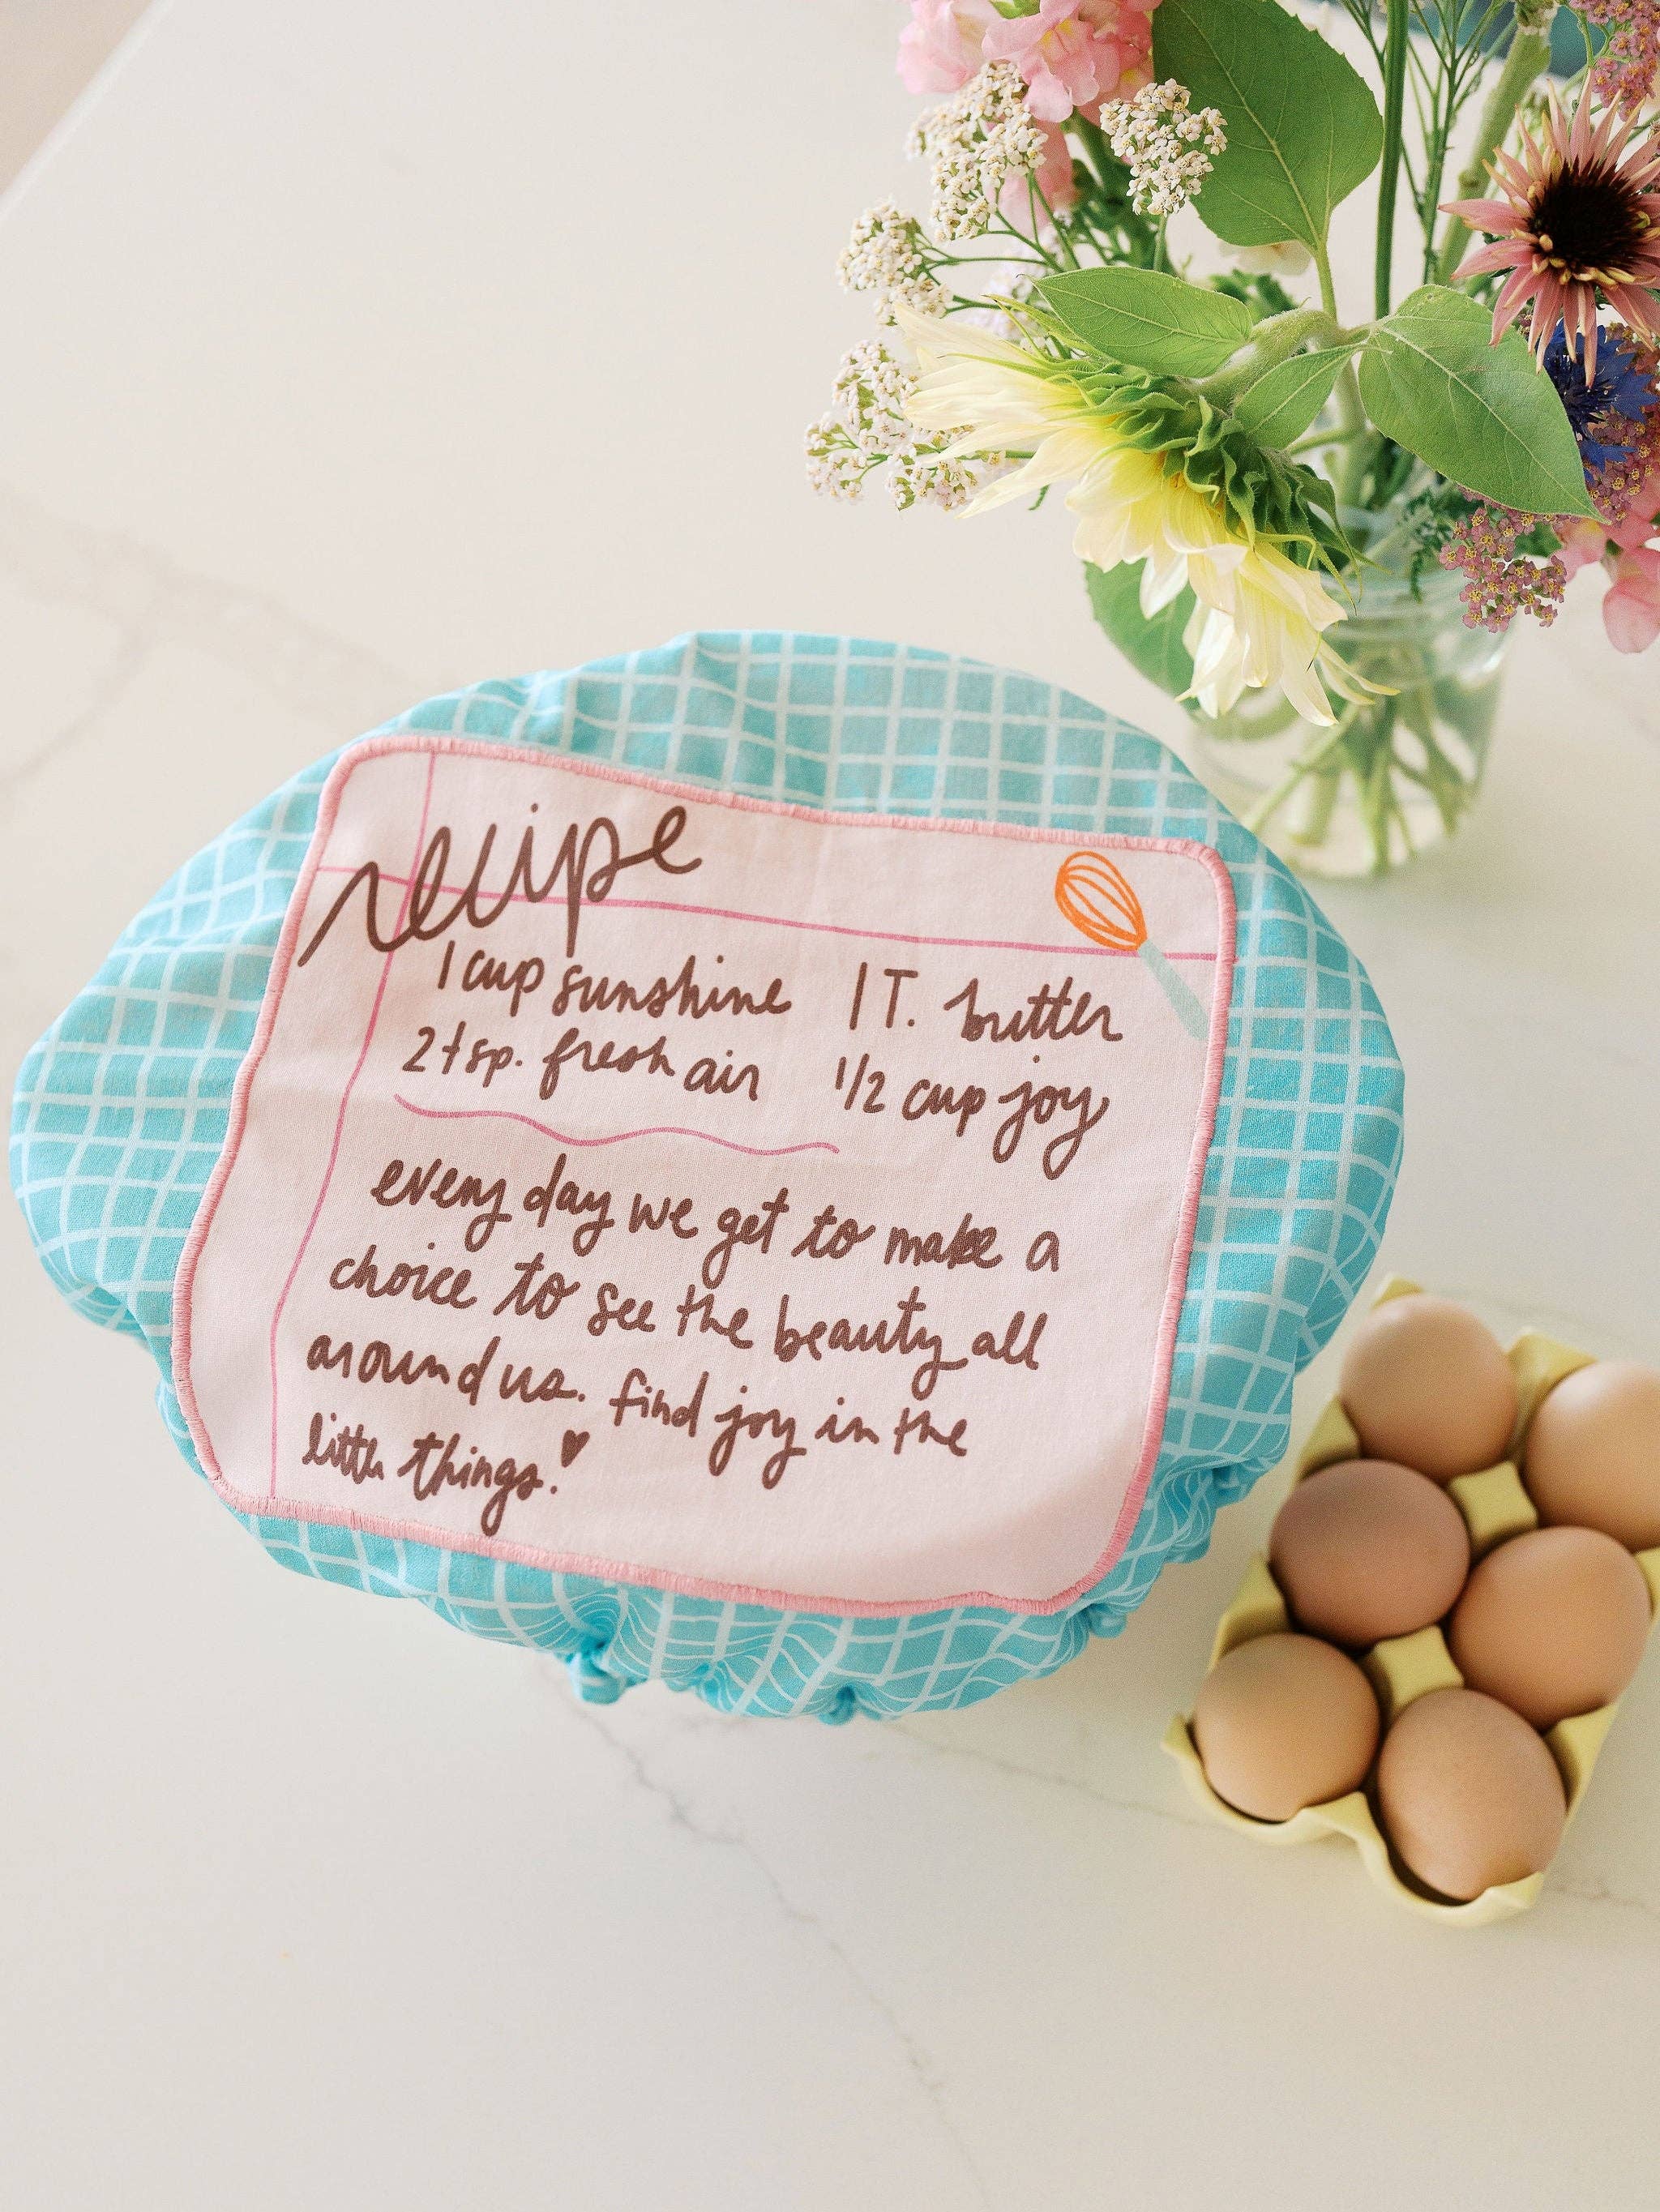 recipe
1 cup sunshine 1 T. butter
2 tsp. fresh air 1/2 cup joy
every day we get to make a
choice to see the beauty all
around us. find joy in the
little things.